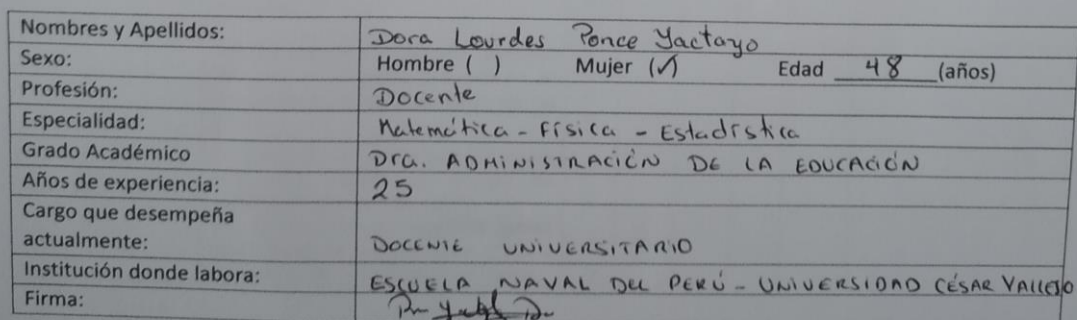 Nombres y Apellidos: Dora Lourdes Ponce Yactayo
Sexo: Hombre ( ) Mujer (✓) Edad 48 (años)
Profesión: Docente
Especialidad: Matemática - Física - Estadística
Grado Académico Dra. ADMINISTRACIÓN DE LA EDUCACIÓN
Años de experiencia: 25
Cargo que desempeña
actualmente: DOCENTE UNIVERSITARIO
Institución donde labora: ESCUELA NAVAL DEL PERÚ - UNIVERSIDAD CÉSAR VALLEJO
Firma: